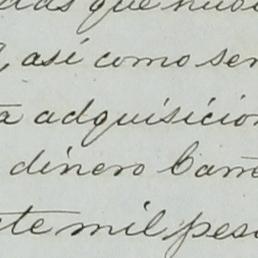 que
, así como ser
a adquisicion
dinero Carre
te mil pes